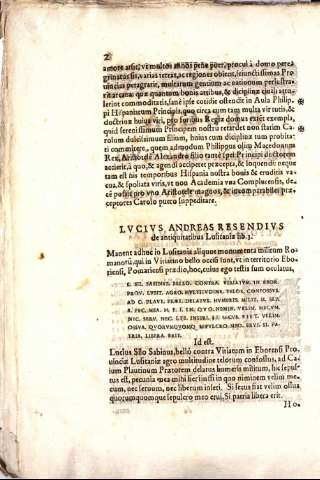 2
amore arsit, vt multos annos pene puer, procul à domo pere
grinatus sit, varias terras, ac regiones obiens, iucundissimas Pro
uincias peragrarit, multarum gentium ac nationum perlustra-
rit arcana: quæ quantum bonis artibus, & disciplinæ cuiq; attu-
lerint commoditatis, sanè ipse cotidie ostendit in Aula Philip
pi Hispaniæ Principis, quo cum tanta circa eum sit vita tutis, &
doctrinæ huius viri, pro foribus Regiæ domus extet exempla,
quid serenissimum Principem nostrum retardet non statim Ca
rolum dulcissimum filium, huius cum disciplinæ tum probita-
ti committere, quem admodum Philippus olim Macedonum
Rex, Aristotele Alexandro filio
à quo, & agendi acciperet præcepta, & loquendi: neque
tam est his temporibus Hispania nostra bonis & eruditis va
cua, & spoliata viris, vt non Academia vna Complutensis, de
& incomparabiles præ
ceptores Carolo puero suppeditare.
LVCIVS ANDREAS RESENDIVS
de antiquitatibus Lusitaniæ lib. 3.
Manent adhuc in Lusitania aliquot monumenta militum Ro
manorũ, qui in Viriatino bello occisi sunt, vt in territorio Ebo
rensi, Pomarensi prædio, hoc, cuius ego testis sum oculatus,
L. SIL. SABINVS. BELLO. CONTRA. VIRIATVM. IN. EBOR.
PROV. LVSIT. AGRO. MVLTITVDINE. TELOR. CONFOSSVS.
AD C. PLAVT. PRAET. DELATVS. HVMERIS. MILIT. H. SEP.
E. PEC. MEA. M. F. I. IN. QVO. NEMIN. VELIM. MECVM.
NEC. SERV. NEC. LIB. INSERI. SI. SECVS. FIET. VELIM.
OSSVA. QVORVMQVOMQ. SEPVLCRO. MEO. ERVI. SI. PA-
TRIA. LIBERA. ERIT.
Id est.
Lucius Silo Sabinus, bello contra Viriatum in Eborensi Pro-
uinciæ Lusitaniæ agro multitudine telorum confossus, ad Ca
ium Plautium Prætorem delatus humeris militum, hic sepul-
tus est, pecunia mea mihi fieri iussi in quo neminem velim me
cum, nec seruum, nec liberum inseri. Si secus fiat velim ossua
quorumquomque sepulcro meo erui, Si patria libera erit.
Ho.